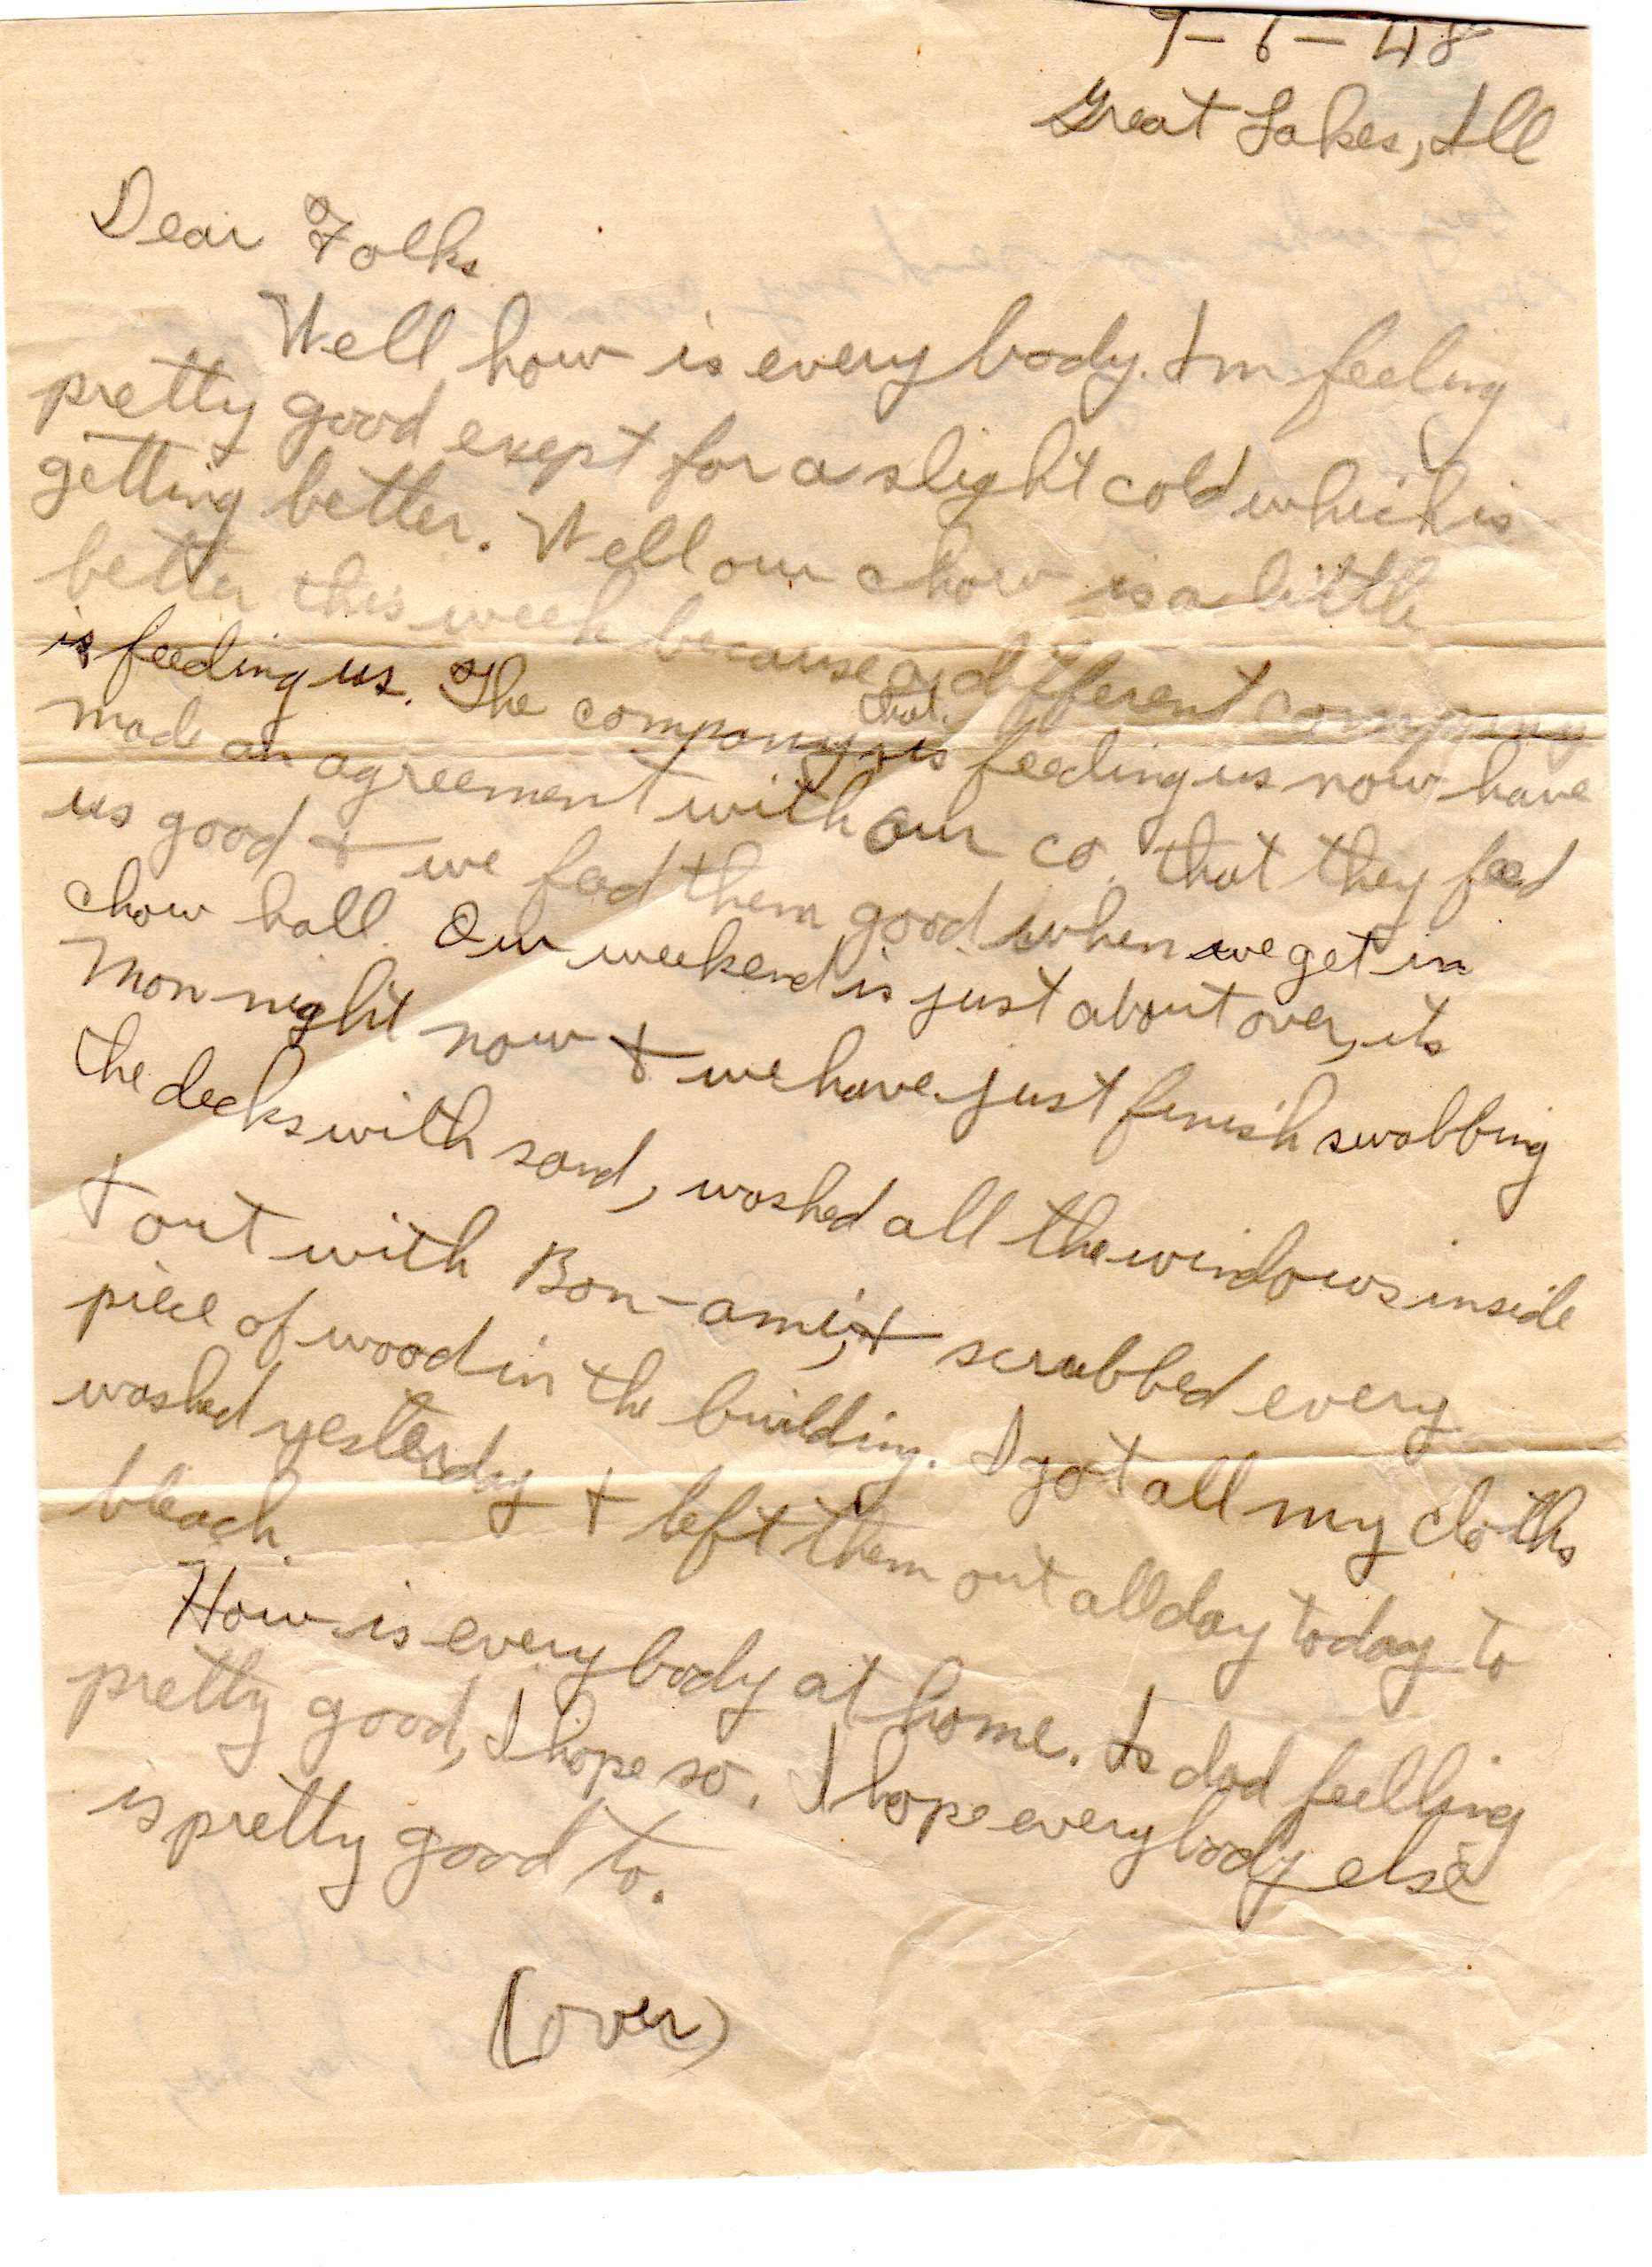 9-6-48
Great Lakes, Ill
Dear Folks
Well how is everybody. Im feeling
pretty good exept for a slight cold which is
getting better. Well our chow is a little
better this week because a different company
is feeding us. The company that is feeding us now have
made an agreement with our co. that they feed
us good & we feed them good when we get in
chow hall. Our weekend is just about over, its
Mon night now & we have just finish swabbing
the decks with sand, washed all the windows inside
& out with Bon-ami, & scrubbed every
piece of wood in the building. I got all my cloths
washed yesterdy & left them out all day today to
bleach.
How is everybody at home. Is dad feelling
pretty good, I hope so. I hope everybody else
is pretty good to.
(over)